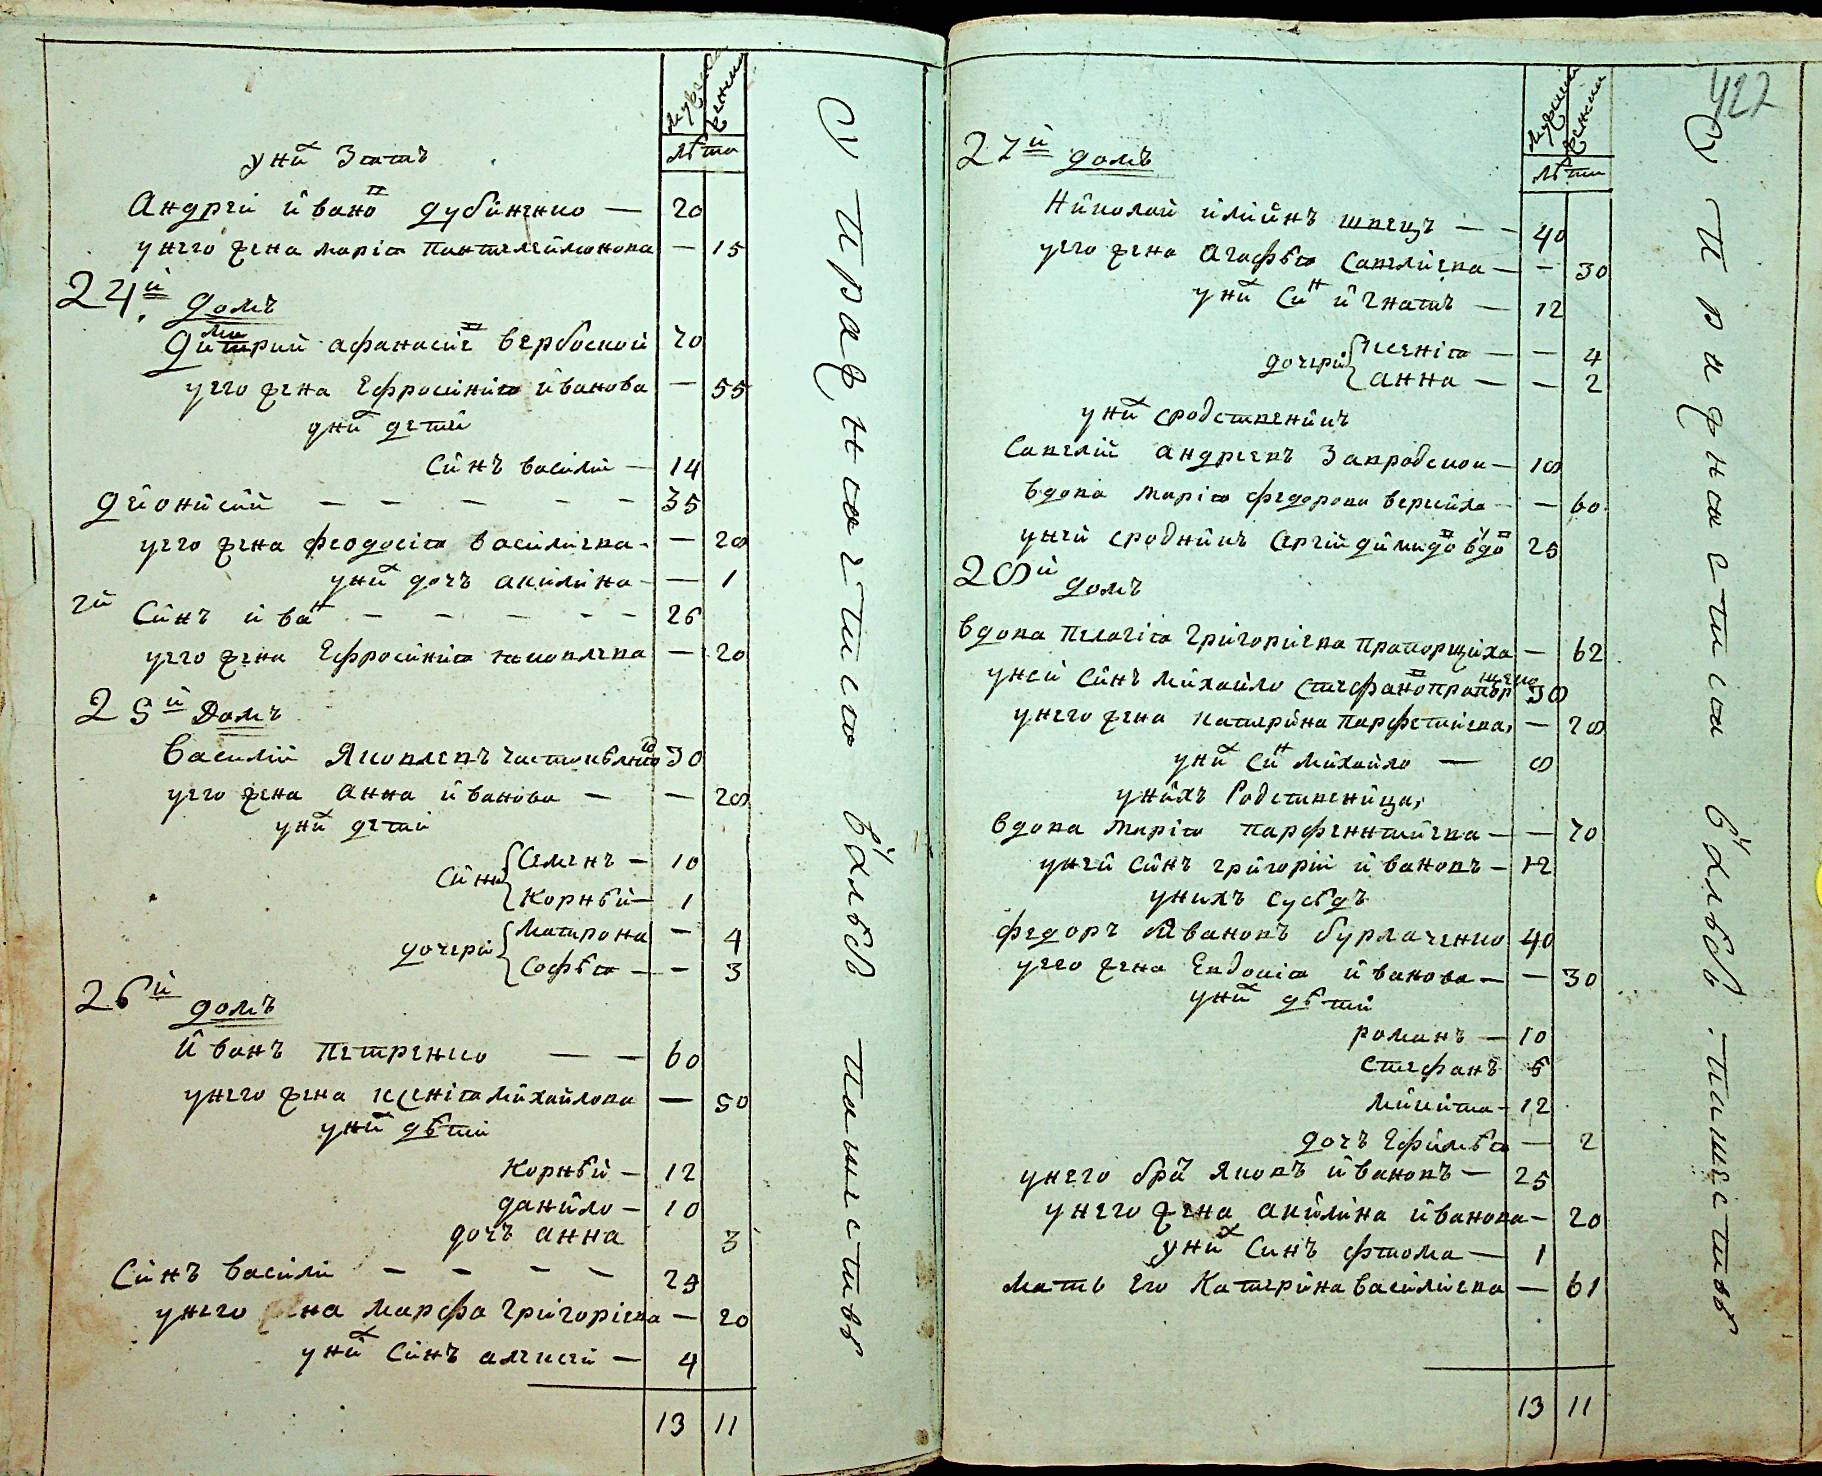 мужеска женска
лѣта
у ни х зать
Андрей Иванов Дубиненко — 20
у него жена Марія Пантелеймонова — 15
24й домъ
Димитрий Афанасіев Вербоской 70
у его жена Ефросинія Иванова — 55
у них детей
Синъ Василій — 14
Дионисий — — — — — 35
у его жена Феодосія Василіева — 28
у них дочъ Акилина — 1
2й Синъ Иван — — — — — 26
у его жена Ефросинія Яковлева — 20
25й Домъ
Василий Яковлевъ 30
у его жена Анна Иванова — — 28
у них детей
Сини Семенъ — 10
Корнѣй — 1
дочери Матрона — 4
Софѣя — — 3
26й домъ
Иванъ Петренко — — 60
у него жена Ксенія Михайлова — 50
у них дѣтей
Корнѣй — 12
Данило — 10
дочъ Анна 3
Синъ Василий — — — — 24
у него жена Марфа Григоріева — 20
у них Синъ Алексей — 4
13 11
У пражнога тиснѧ в хлѣвѣ памѣстивѣ
422
мужеска женска
лѣта
27й домъ
Николай Илиинъ Швецъ — — 40
у его жена Агафѣя Савелиева — — 30
у них Син Игнатъ — 12
дочери Ксенія — — 4
Анна — — 2
у них сродственикъ
Савелий Андреевъ — 18
вдова Марія Федорова — 60
у ней сродникъ Сергій Димидов вдов 25
28й домъ
вдова Пелагія Григоріева Прапорщиха — 62
у ней Синъ Михайло Стефанов Прапорщенко 38
у него жена Катерина — 28
у них Син Михайло — 8
у нихъ Родственица,
вдова Марія — — 70
у ней Синъ Григорій Ивановъ — 12
у нихъ Сусѣдъ
Федоръ Ивановъ Бурлаченко 40
у его жена Евдокія Иванова — — 30
у них дѣтей
Романъ — 10
Стефанъ 5
Микита — 12
дочъ Ефимѣя — 2
у него брат Яковъ Ивановъ — 25
у него жена Акилина Иванова — 20
у них Синъ Фтома — 1
Мать его Катерина Василиева — 61
13 11